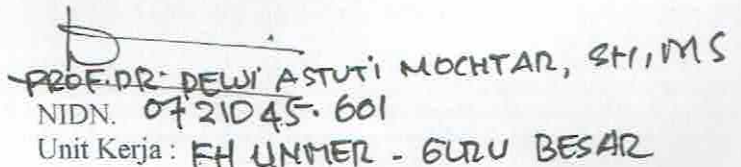 PROF. DR. DEWI ASTUTI MOCHTAR, SH, MS
NIDN. 0721045.601
Unit Kerja : FH UNMER - GURU BESAR